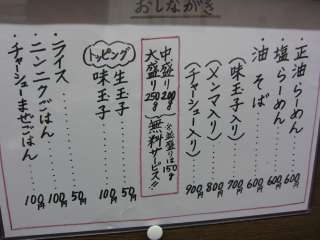 おしながき
正油らーめん 600円
塩らーめん 600円
油そば 600円
(味玉子入り) 700円
(メンマ入り) 800円
(チャーシュー入り) 900円
中盛り200g
大盛り250g
※並盛りは150g
無料サービス!!
トッピング
生玉子 50円
味玉子 100円
ライス 50円
ニンニクごはん 100円
チャーシューまぜごはん 100円